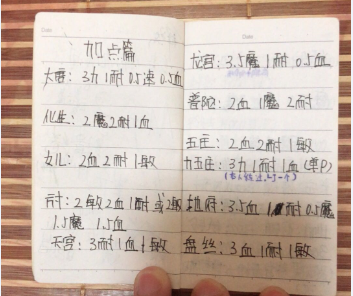 Date
加点篇
大唐：3力1耐0.5速0.5血
化生：2魔2耐1血
女儿：2血2耐1敏
方寸：2敏2血1耐或2敏
1.5魔 1.5血
天宫：3耐1血1敏
Date
龙宫：3.5魔1耐0.5血
普陀：2血1魔2耐
五庄：2血2耐1敏
力五庄：3力1耐1血
地府：3.5血1耐0.5魔
盘丝：3血1耐1敏